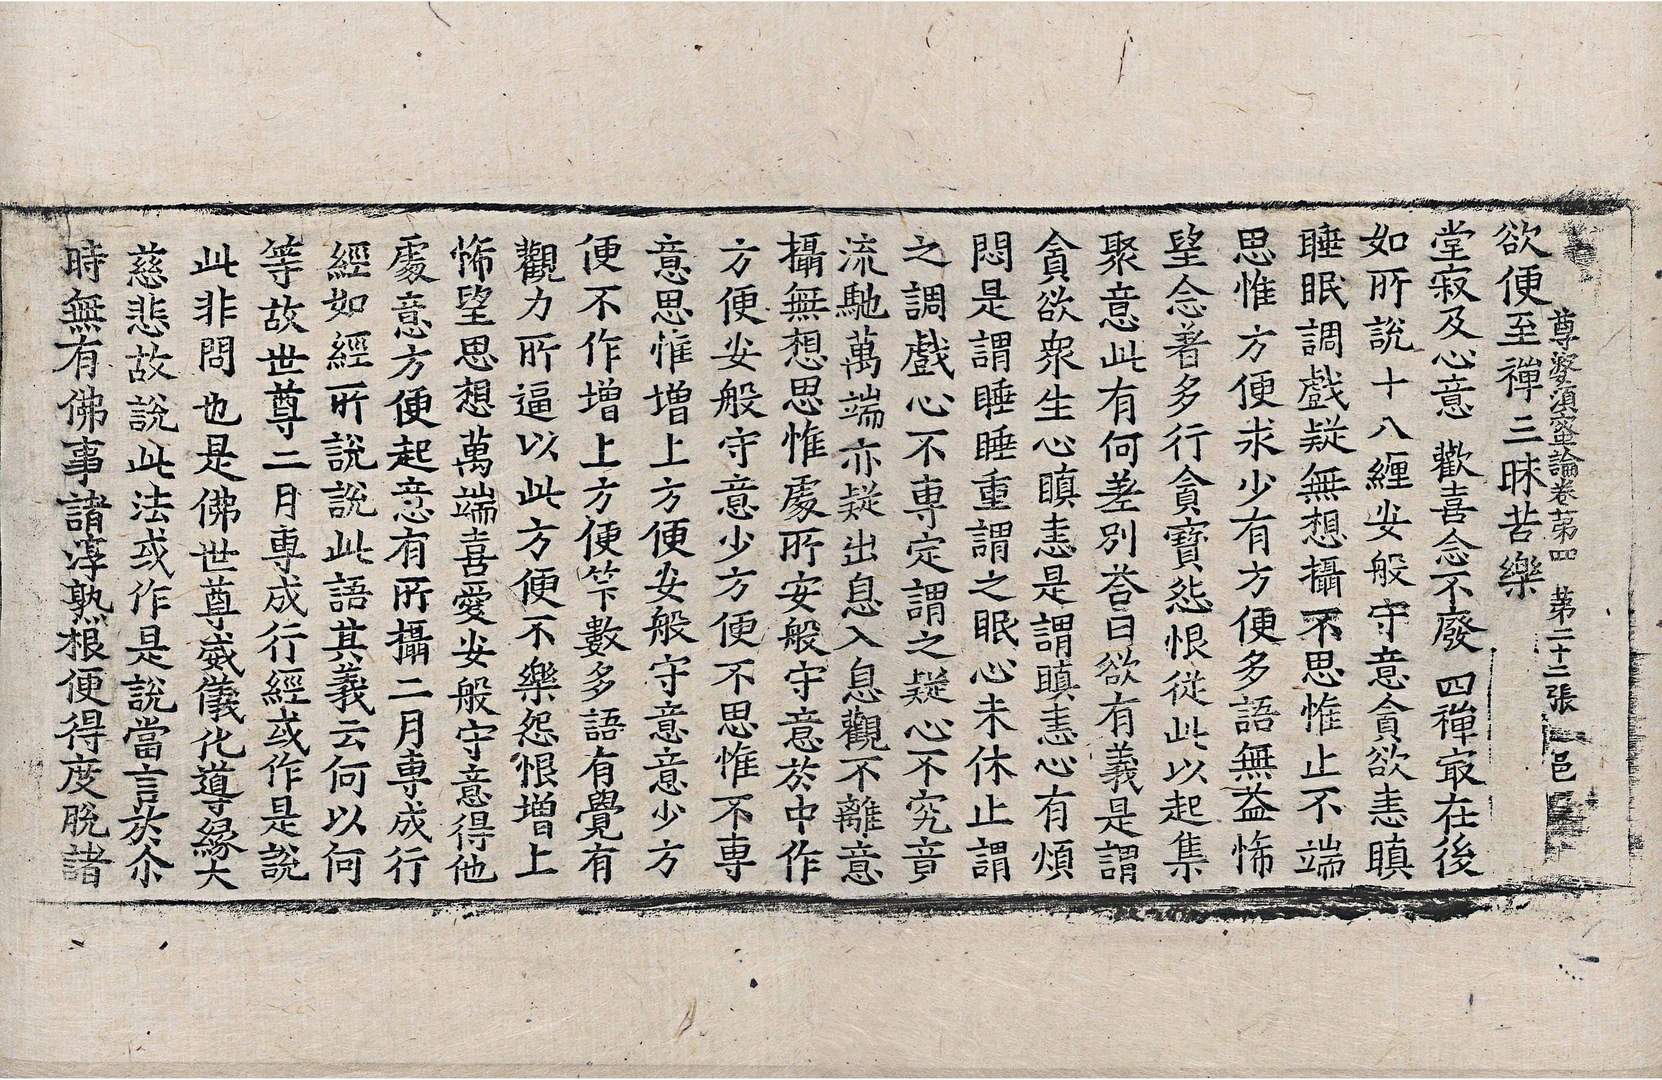 尊婆須蜜論卷第四 第二十二張 邑
欲便至禪三昧苦樂
堂寂及心意 歡喜念不廢 四禪㝡在後
如所說十八纏安般守意貪欲恚瞋
睡眠調戲疑無想攝不思惟止不端
思惟方便求少有方便多語無益悕
望念著多行貪寶怨恨從此以起集
聚意此有何差別荅曰欲有義是謂
貪欲衆生心瞋恚是謂瞋恚心有煩
悶是謂睡睡重謂之眠心未休止謂
之調戲心不専定謂之疑心不究竟
流馳萬端亦疑出息入息觀不離意
攝無想思惟處所安般守意於中作
方便安般守意少方便不思惟不専
意思惟增上方便安般守意意少方
便不作增上方便竿下數多語有覺有
觀力所逼以此方便不樂怨恨增上
悕望思想萬端喜愛安般守意得他
處意方便起意有所攝二月専成行
經如經所說說此語其義云何以何
等故世尊二月専成行經或作是說
此非問也是佛世尊威儀化導緣大
慈悲故說此法或作是說當言於尒
時無有佛事諸淳熟根便得度脫諸